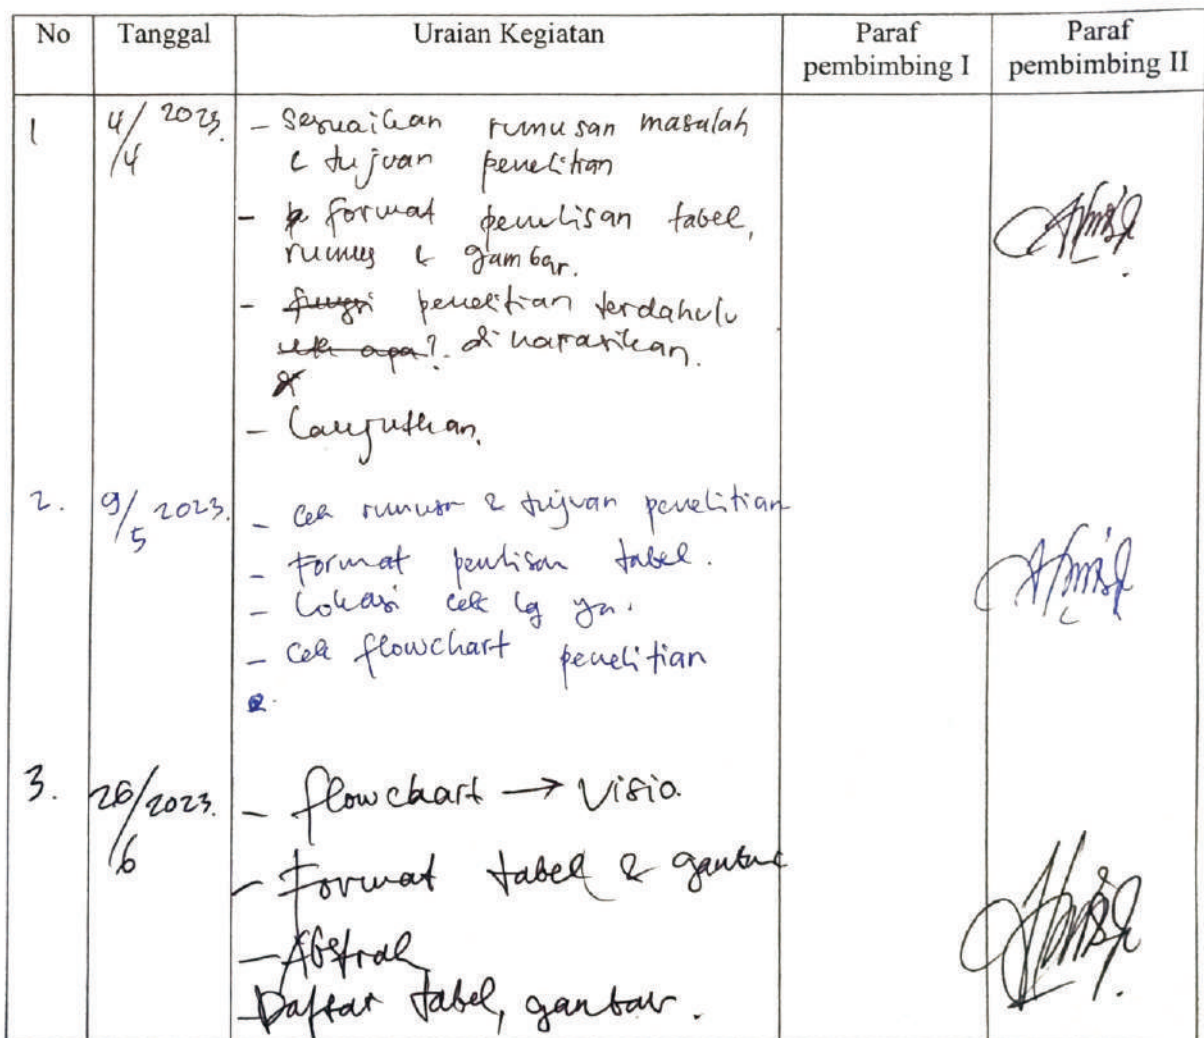 No Tanggal Uraian Kegiatan Paraf pembimbing I Paraf pembimbing II
1 4/4 2023. - Sesuaikan rumusan masalah
& tujuan penelitian
- format penulisan tabel,
rumus & gambar.
- fungsi penelitian terdahulu
apa? dinarasikan.
- Lanjutkan.
2. 9/5 2023. - Cek rumusan & tujuan penelitian
- Format penulisan tabel.
- Lokasi cek lg ya.
- Cek flowchart penelitian
3. 26/6 2023. - flowchart → Visio.
- Format tabel & gambar
- Abstrak
- Daftar tabel, gambar.